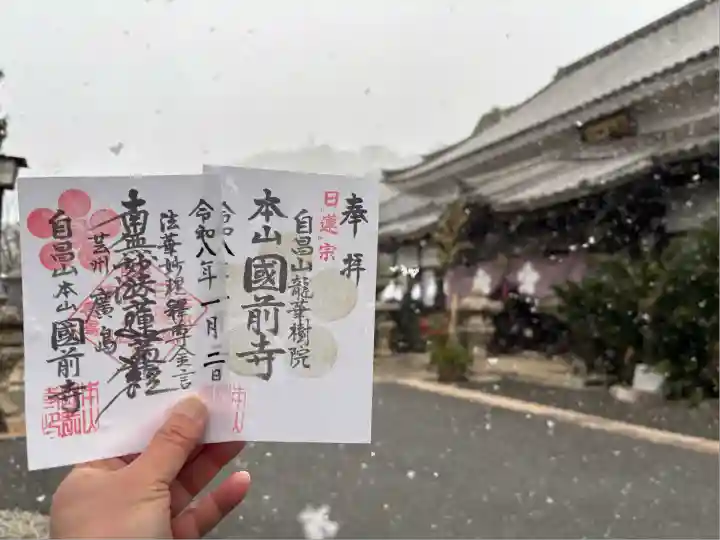 奉拝
日蓮宗
自昌山龍華樹院
本山國前寺
令和八
令和八年一月二日
法華妙理釋尊金言
南無妙法蓮華經
芸州廣島
自昌山本山國前寺